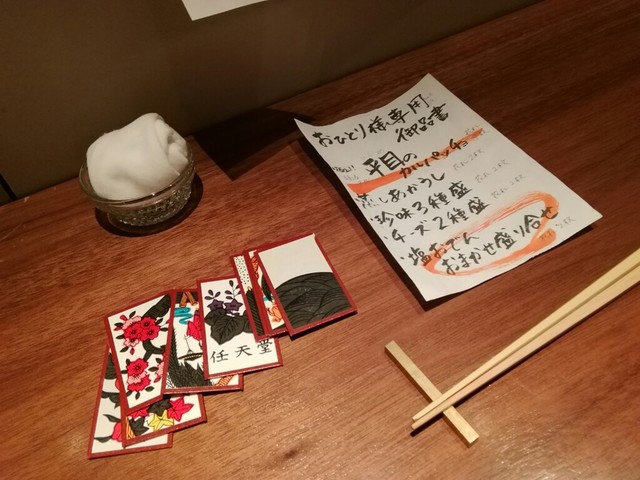 おひとり様専用
御品書
平目の
カルパッチョ
蒸しあわうし
珍味3種盛
チーズ2種盛
塩おでん
おまかせ盛り合せ
任天堂